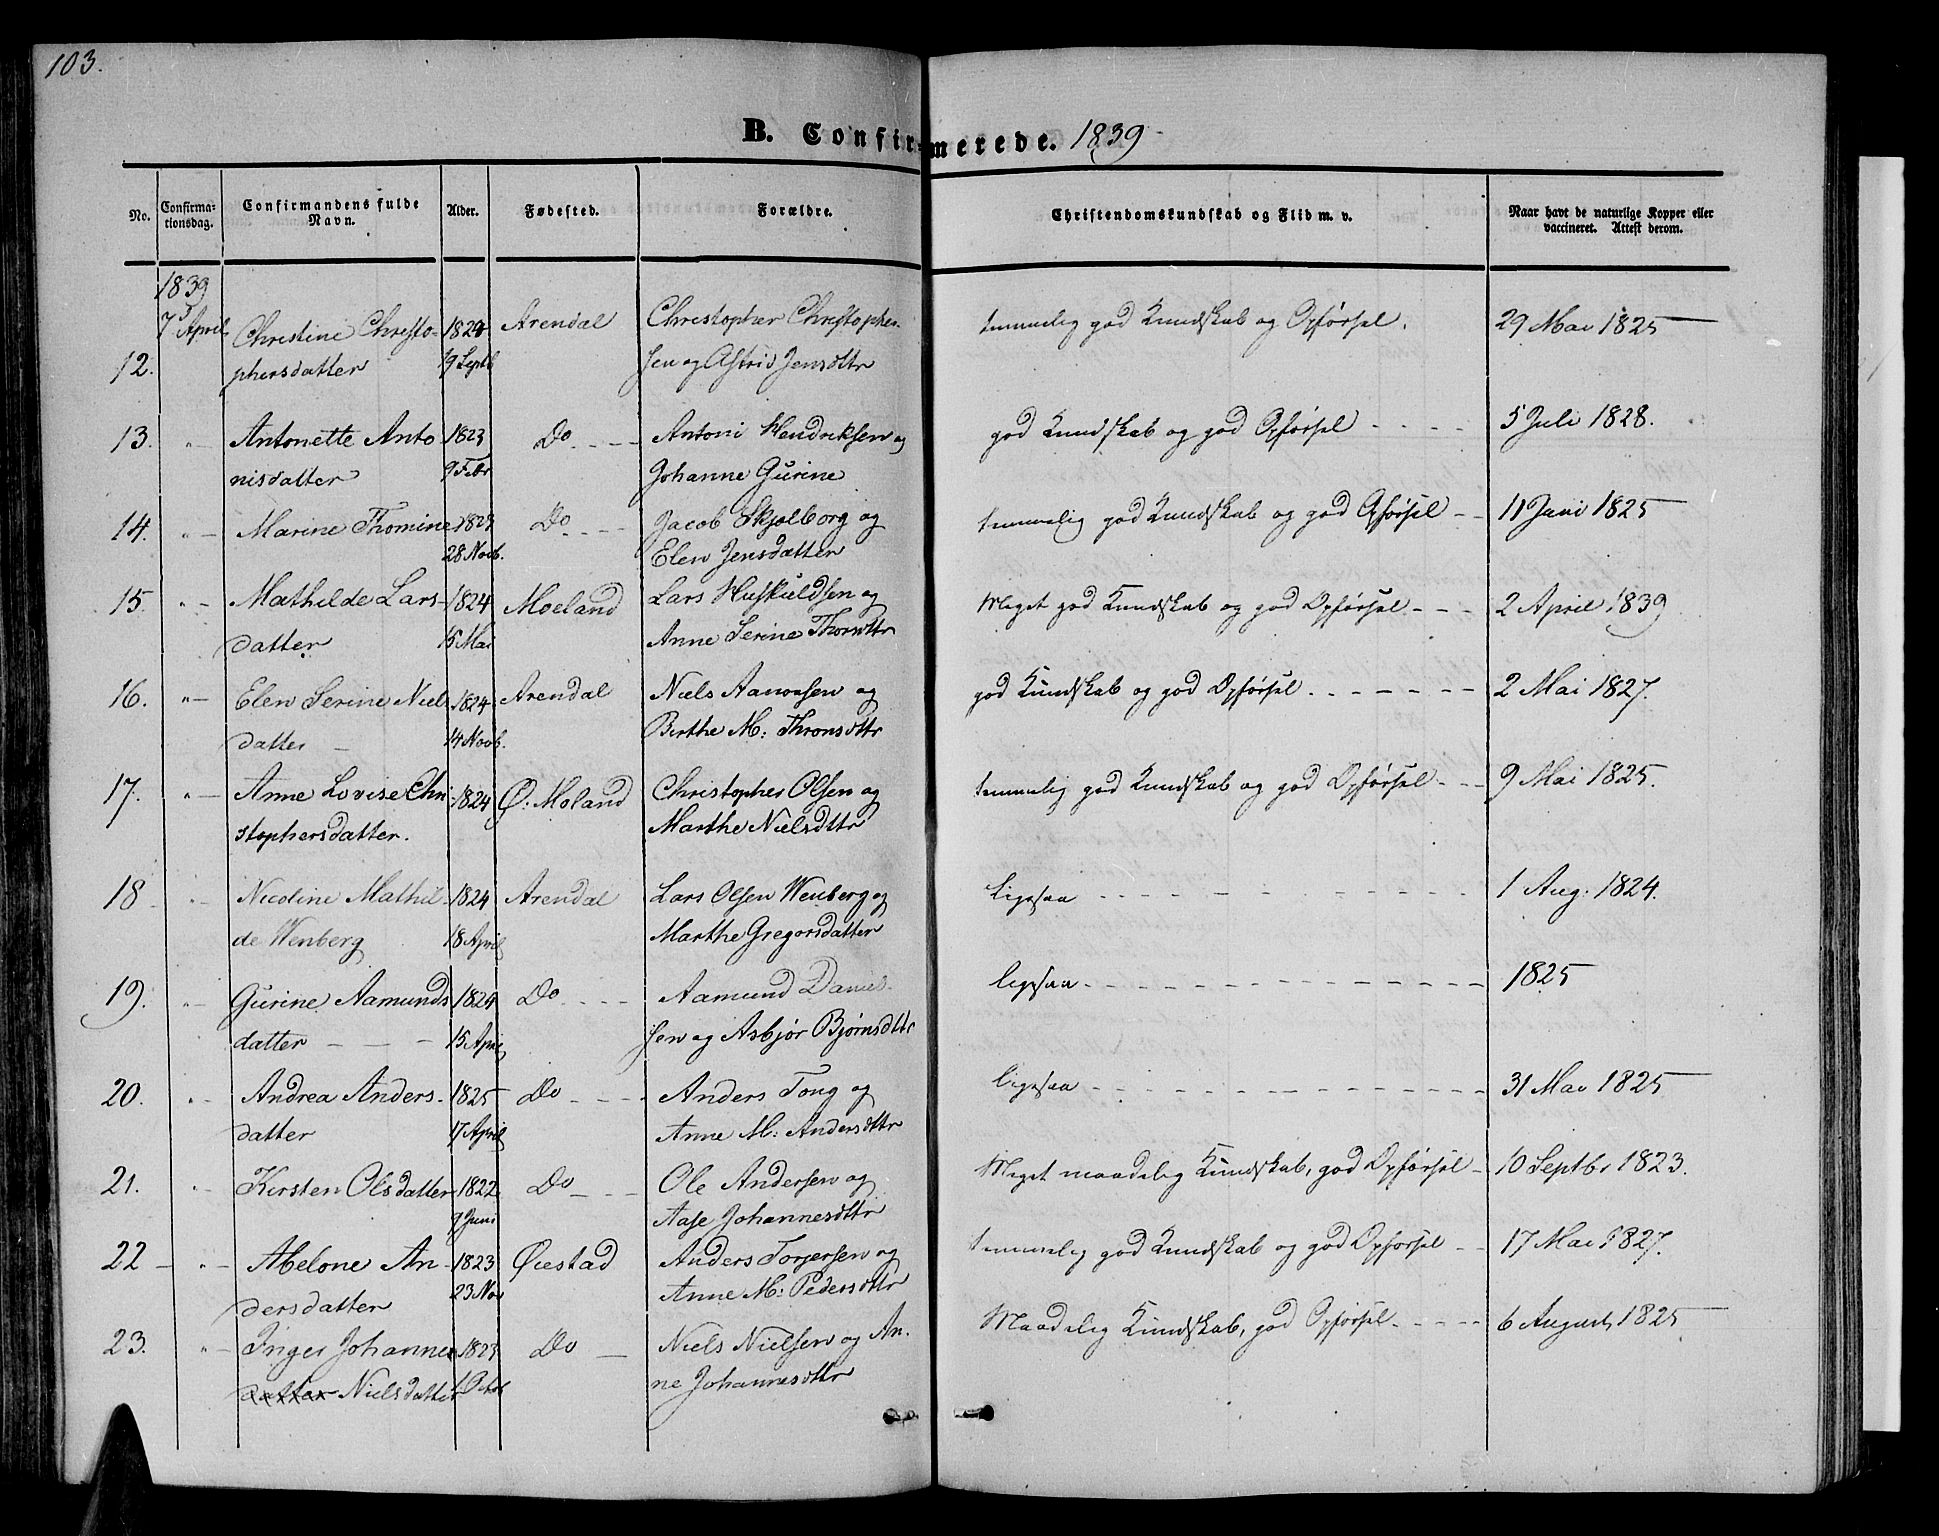 103.
B. Confirmerede. 1839
No.
Confirma-
tionsdag.
Confirmandens fulde
Navn.
Alder.
Fødested.
Forældre.
Christendomskundskab og Flid m. v.
Naar havt de naturlige Kopper eller
vaccineret. Attest derom.
1839
7 April Christine Christo- 1824 Arendal Christopher Christopher- temmelig god Kundskab og Opførsel. 29 Mai 1825
12. phersdatter 19 Septb sen og Astrid Jensdttr
13. " Antonette Anto 1823 Do Antoni Hendriksen og god Kundskab og god Opførsel 5 Juli 1828.
nisdatter 9 Febr Johanne Gurine
14. " Marine Thomine 1823 Do Jacob Skjolborg og temmelig god Kundskab og god Opførsel 11 Juni 1825
28 Novb. Elen Jensdatter
15. " Mathilde Lars- 1824 Moeland Lars Huskuldsen og Meget god Kundskab og god Opførsel 2 April 1839
datter 15 Mai Anne Serine Thorsdttr
16. " Elen Serine Niels 1824 Arendal Niels Aanonsen og god Kundskab og god Opførsel 2 Mai 1827.
datter 14 Novb. Birthe M: Thronsdttr
17. " Anne Lovise Chri- 1824 Ø. Moland Christopher Olsen og temmelig god Kundskab og god Opførsel 9 Mai 1825.
stophersdatter. Marthe Nielsdttr
18 " Nicoline Mathil- 1824 Arendal Lars Olsen Wenberg og Ligesaa 1 Aug: 1824.
de Wenberg 18 April Marthe Gregorsdatter
19. " Gurine Aamunds 1824 Do Aamund Daniel- ligesaa 1825
datter 15 April sen og Asbjør Bjørnsdttr
20. " Andrea Anders- 1825 Do Anders Tong og ligesaa 31 Mai 1825
datter 17 April Anne M: Andersdttr
21. " Kirsten Olsdatter 1822 Do Ole Andersen og Meget maadelig Kundskab, god Opførsel 10 Septbr 1823.
9 Juni Aase Johannesdttr
22 " Abelone An- 1823 Øiestad Anders Torjersen og temmelig god Kundskab og god Opførsel 17 Mai 1827.
dersdatter 23 Nov Anne M: Pedersdttr
23. " Inger Johanne 1823 Do Niels Nielsen og An- Maadelig Kundskab, god Opførsel 6 August 1825
datter Nielsdatter 1 Octbr ne Johannesdttr